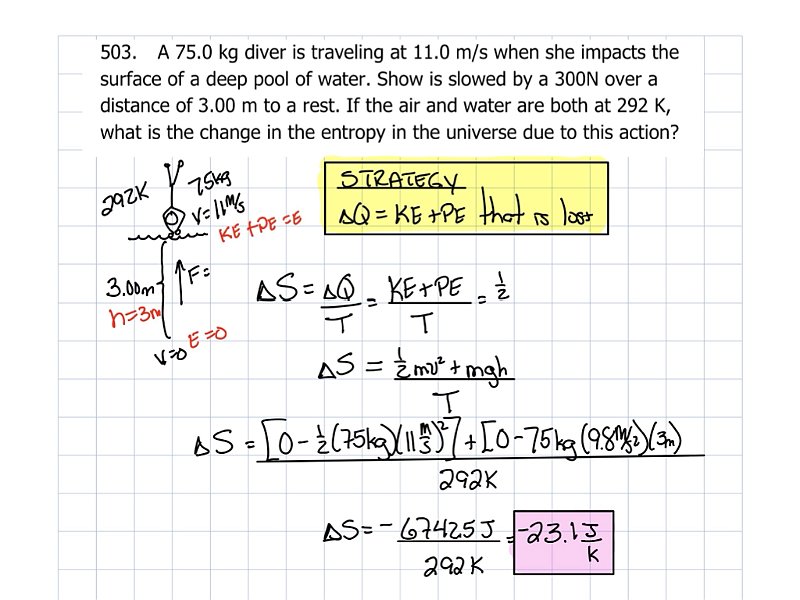 503. A 75.0 kg diver is traveling at 11.0 m/s when she impacts the
surface of a deep pool of water. Show is slowed by a 300N over a
distance of 3.00 m to a rest. If the air and water are both at 292 K,
what is the change in the entropy in the universe due to this action?
292K
75kg
V=11m/s
KE+PE=E
STRATEGY
ΔQ = KE+PE that is lost
3.00m
h=3m
F=
V=0
E=0
ΔS = ΔQ/T = KE+PE/T = 1/2
ΔS = 1/2 mv² + mgh / T
ΔS = [0 - 1/2(75kg)(11 m/s)²] + [0 - 75kg(9.8m/s²)(3m) / 292K
ΔS = - 6742.5 J / 292K = -23.1 J/K